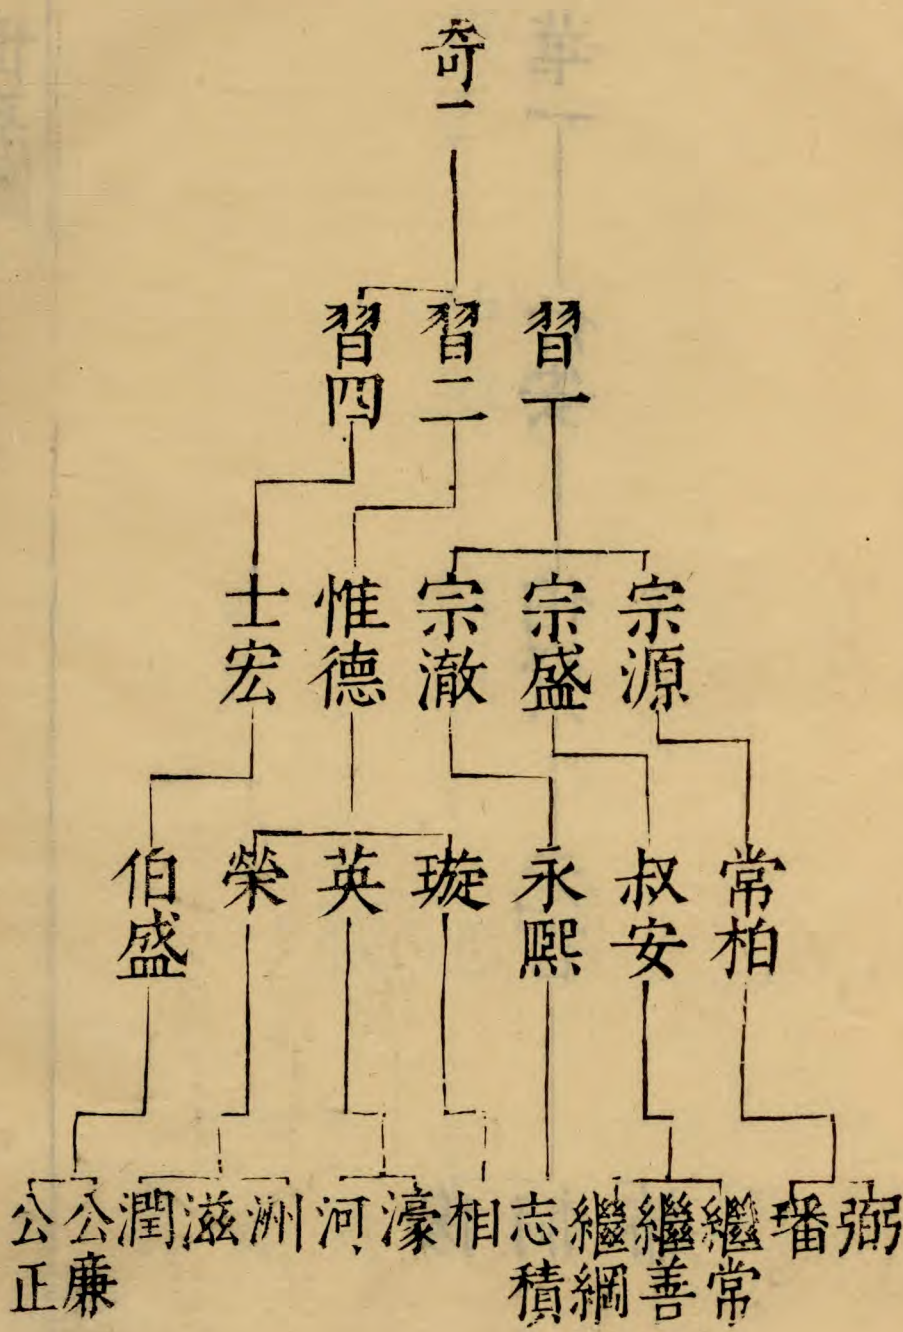 奇一
習一
習二
習四
宗源
宗盛
宗澈
惟德
士宏
常柏
叔安
永熙
璇
英
榮
伯盛
弼
璠
繼常
繼善
繼綱
志積
相
濠
河
洲
滋
潤
公廉
公正